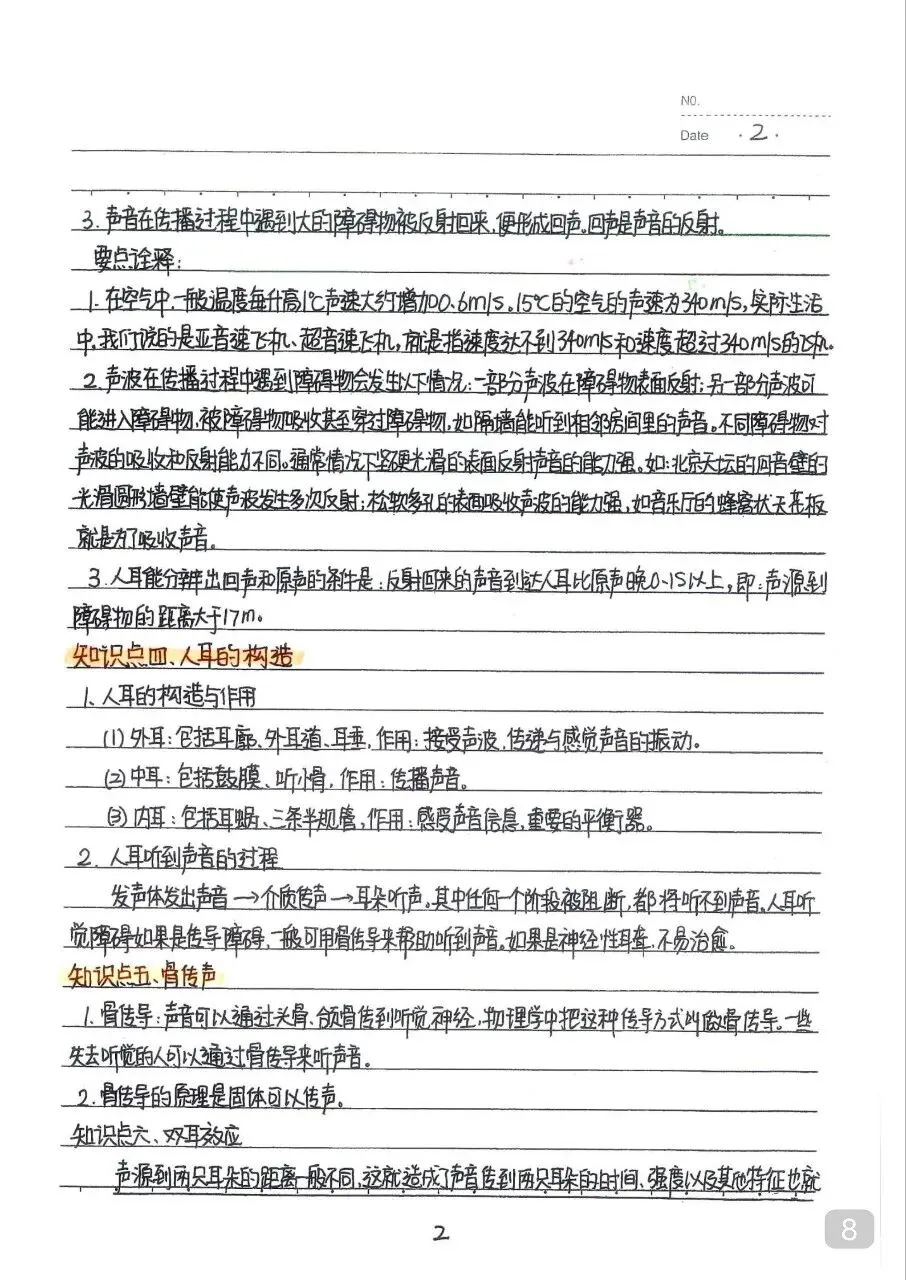 NO.
Date ·2·
3.声音在传播过程中遇到大的障碍物被反射回来,便形成回声。回声是声音的反射。
要点诠释:
1.在空气中,一般温度每升高1℃声速大约增加0.6m/s。15℃的空气的声速为340m/s,实际生活
中,我们说的是亚音速飞机、超音速飞机,就是指速度达不到340m/s和速度超过340m/s的飞机。
2.声波在传播过程中遇到障碍物会发生以下情况:一部分声波在障碍物表面反射;另一部分声波可
能进入障碍物,被障碍物吸收甚至穿过障碍物,如隔墙能听到相邻房间里的声音。不同障碍物对
声波的吸收和反射能力不同。通常情况下坚硬光滑的表面反射声音的能力强。如:北京天坛的回音壁的
光滑圆形墙壁能使声波发生多次反射;松软多孔的表面吸收声波的能力强,如音乐厅的蜂窝状天花板
就是为了吸收声音。
3.人耳能分辨出回声和原声的条件是:反射回来的声音到达人耳比原声晚0.1S以上,即:声源到
障碍物的距离大于17m。
知识点四、人耳的构造
1、人耳的构造与作用
(1)外耳:包括耳廓、外耳道、耳垂,作用:接受声波,传递与感觉声音的振动。
(2)中耳:包括鼓膜、听小骨,作用:传播声音。
(3)内耳:包括耳蜗、三条半规管,作用:感受声音信息,重要的平衡器。
2.人耳听到声音的过程
发声体发出声音→介质传声→耳朵听声。其中任何一个阶段被阻断,都将听不到声音。人耳听
觉障碍如果是传导障碍,一般可用骨传导来帮助听到声音。如果是神经性耳聋,不易治愈。
知识点五、骨传声
1.骨传导:声音可以通过头骨、颌骨传到听觉神经,物理学中把这种传导方式叫做骨传导。一些
失去听觉的人可以通过骨传导来听声音。
2.骨传导的原理是固体可以传声。
知识点六、双耳效应
声源到两只耳朵的距离一般不同,这就造成了声音传到两只耳朵的时间、强度以及其他特征也就
2
8